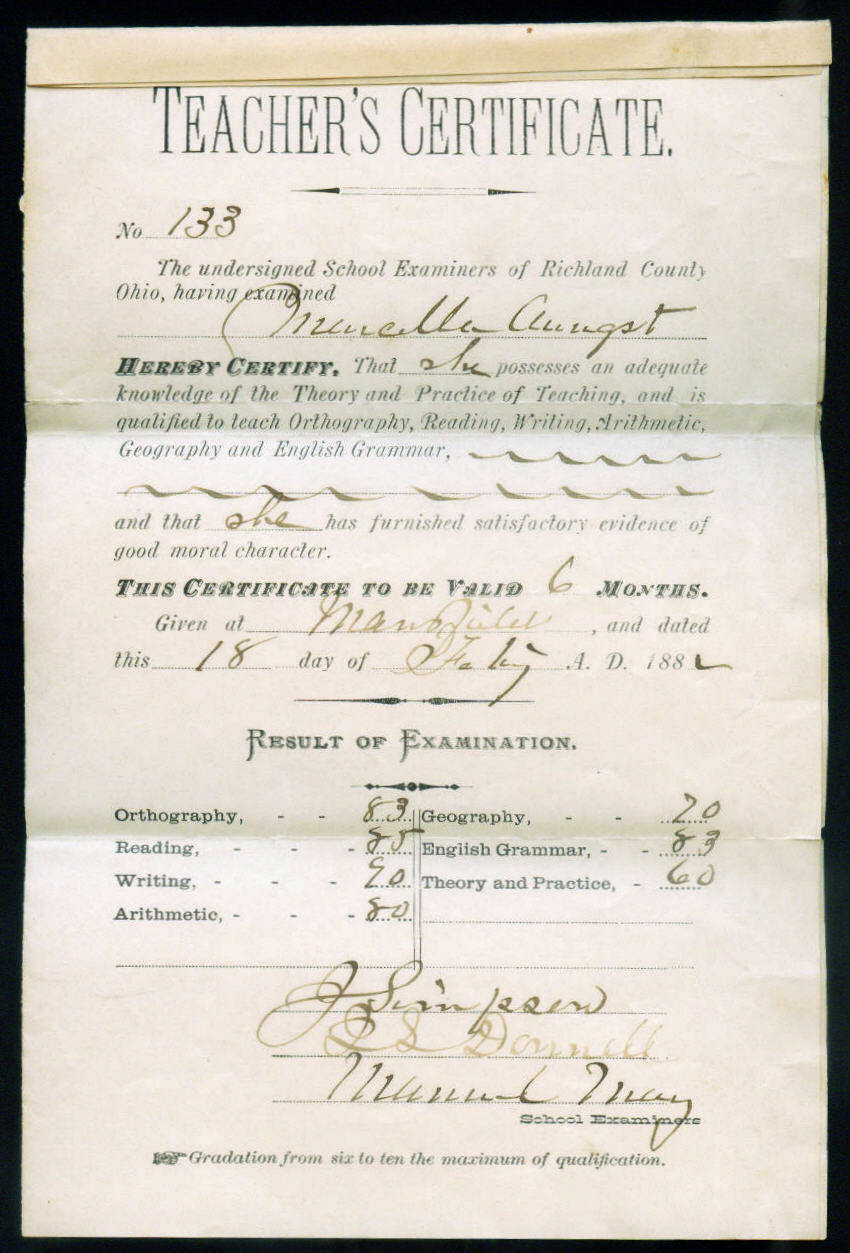 TEACHER'S CERTIFICATE.
No 133
The undersigned School Examiners of Richland County
Ohio, having examined
Marcella Aungst
HEREBY CERTIFY. That she possesses an adequate
knowledge of the Theory and Practice of Teaching, and is
qualified to teach Orthography, Reading, Writing, Arithmetic,
Geography and English Grammar,
and that she has furnished satisfactory evidence of
good moral character.
THIS CERTIFICATE TO BE VALID 6 MONTHS.
Given at Mansfield, and dated
this 18 day of Feby A. D. 1882
RESULT OF EXAMINATION.
Orthography, - - 83 Geography, - - 70
Reading, - - - 85 English Grammar, - - 83
Writing, - - - 90 Theory and Practice, - 60
Arithmetic, - - - 80
J Simpson
Donnell
Manuel May
School Examiners
☞ Gradation from six to ten the maximum of qualification.